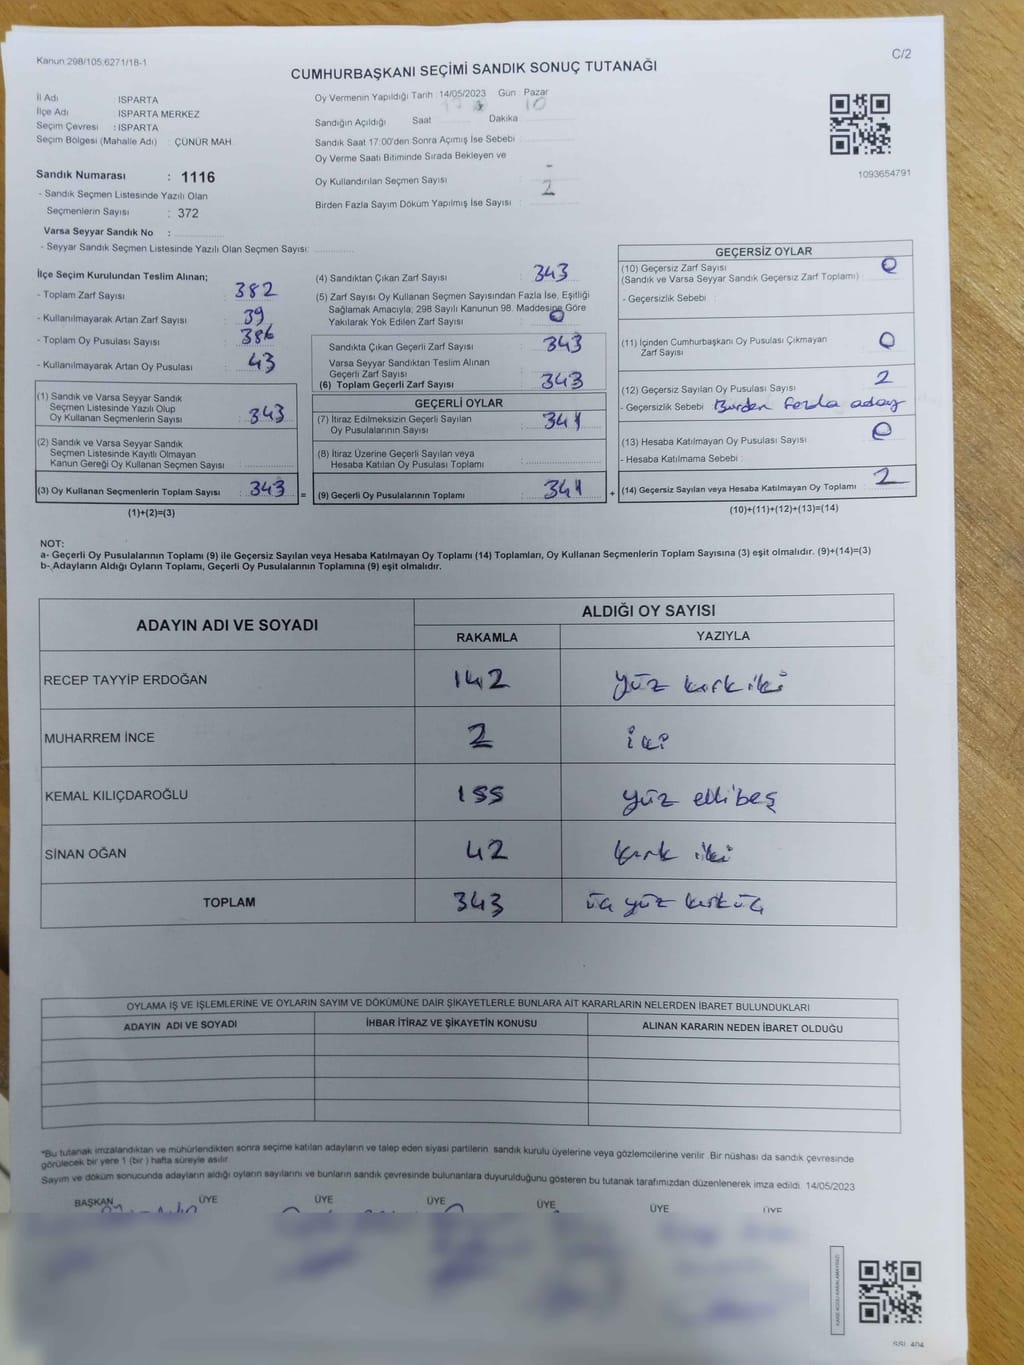 Kanun 298/105.6271/18-1
C/2
CUMHURBAŞKANI SEÇİMİ SANDIK SONUÇ TUTANAĞI
İl Adı : ISPARTA
İlçe Adı : ISPARTA MERKEZ
Seçim Çevresi : ISPARTA
Seçim Bölgesi (Mahalle Adı) : ÇÜNÜR MAH.
Sandık Numarası : 1116
- Sandık Seçmen Listesinde Yazılı Olan
Seçmenlerin Sayısı : 372
Varsa Seyyar Sandık No :
- Seyyar Sandık Seçmen Listesinde Yazılı Olan Seçmen Sayısı:
Oy Vermenin Yapıldığı Tarih : 14/05/2023 Gün : Pazar
Sandığın Açıldığı Saat Dakika 10
Sandık Saat 17:00'den Sonra Açımış İse Sebebi :
Oy Verme Saati Bitiminde Sırada Bekleyen ve
Oy Kullandırılan Seçmen Sayısı : -
Birden Fazla Sayım Döküm Yapılmış İse Sayısı : 2
1093654791
İlçe Seçim Kurulundan Teslim Alınan;
- Toplam Zarf Sayısı : 382
- Kullanılmayarak Artan Zarf Sayısı : 39
- Toplam Oy Pusulası Sayısı : 386
- Kullanılmayarak Artan Oy Pusulası : 43
(1) Sandık ve Varsa Seyyar Sandık
Seçmen Listesinde Yazılı Olup
Oy Kullanan Seçmenlerin Sayısı : 343
(2) Sandık ve Varsa Seyyar Sandık
Seçmen Listesinde Kayıtlı Olmayan
Kanun Gereği Oy Kullanan Seçmen Sayısı :
(3) Oy Kullanan Seçmenlerin Toplam Sayısı : 343 =
(1)+(2)=(3)
(4) Sandıktan Çıkan Zarf Sayısı : 343
(5) Zarf Sayısı Oy Kullanan Seçmen Sayısından Fazla İse, Eşitliği
Sağlamak Amacıyla; 298 Sayılı Kanunun 98. Maddesine Göre
Yakılarak Yok Edilen Zarf Sayısı : 0
Sandıkta Çıkan Geçerli Zarf Sayısı : 343
Varsa Seyyar Sandıktan Teslim Alınan
Geçerli Zarf Sayısı :
(6) Toplam Geçerli Zarf Sayısı : 343
GEÇERLİ OYLAR
(7) İtiraz Edilmeksizin Geçerli Sayılan
Oy Pusulalarının Sayısı : 341
(8) İtiraz Üzerine Geçerli Sayılan veya
Hesaba Katılan Oy Pusulası Toplamı :
(9) Geçerli Oy Pusulalarının Toplamı : 341 +
GEÇERSİZ OYLAR
(10) Geçersiz Zarf Sayısı : 0
(Sandık ve Varsa Seyyar Sandık Geçersiz Zarf Toplamı)
- Geçersizlik Sebebi :
(11) İçinden Cumhurbaşkanı Oy Pusulası Çıkmayan
Zarf Sayısı : 0
(12) Geçersiz Sayılan Oy Pusulası Sayısı : 2
- Geçersizlik Sebebi : Birden fazla aday
(13) Hesaba Katılmayan Oy Pusulası Sayısı : 0
- Hesaba Katılmama Sebebi :
(14) Geçersiz Sayılan veya Hesaba Katılmayan Oy Toplamı : 2
(10)+(11)+(12)+(13)=(14)
NOT:
a- Geçerli Oy Pusulalarının Toplamı (9) ile Geçersiz Sayılan veya Hesaba Katılmayan Oy Toplamı (14) Toplamları, Oy Kullanan Seçmenlerin Toplam Sayısına (3) eşit olmalıdır. (9)+(14)=(3)
b- Adayların Aldığı Oyların Toplamı, Geçerli Oy Pusulalarının Toplamına (9) eşit olmalıdır.
ADAYIN ADI VE SOYADI ALDIĞI OY SAYISI
RAKAMLA YAZIYLA
RECEP TAYYİP ERDOĞAN 142 yüz kırk iki
MUHARREM İNCE 2 iki
KEMAL KILIÇDAROĞLU 155 yüz elli beş
SİNAN OĞAN 42 kırk iki
TOPLAM 343 üç yüz kırk üç
OYLAMA İŞ VE İŞLEMLERİNE VE OYLARIN SAYIM VE DÖKÜMÜNE DAİR ŞİKAYETLERLE BUNLARA AİT KARARLARIN NELERDEN İBARET BULUNDUKLARI
ADAYIN ADI VE SOYADI İHBAR İTİRAZ VE ŞİKAYETİN KONUSU ALINAN KARARIN NEDEN İBARET OLDUĞU
*Bu tutanak imzalandıktan ve mühürlendikten sonra seçime katılan adayların ve talep eden siyasi partilerin sandık kurulu üyelerine veya gözlemcilerine verilir. Bir nüshası da sandık çevresinde
görülecek bir yere 1 (bir ) hafta süreyle asılır.
Sayım ve döküm sonucunda adayların aldığı oyların sayılarını ve bunların sandık çevresinde bulunanlara duyurulduğunu gösteren bu tutanak tarafımızdan düzenlenerek imza edildi. 14/05/2023
BAŞKAN ÜYE ÜYE ÜYE ÜYE ÜYE ÜYE